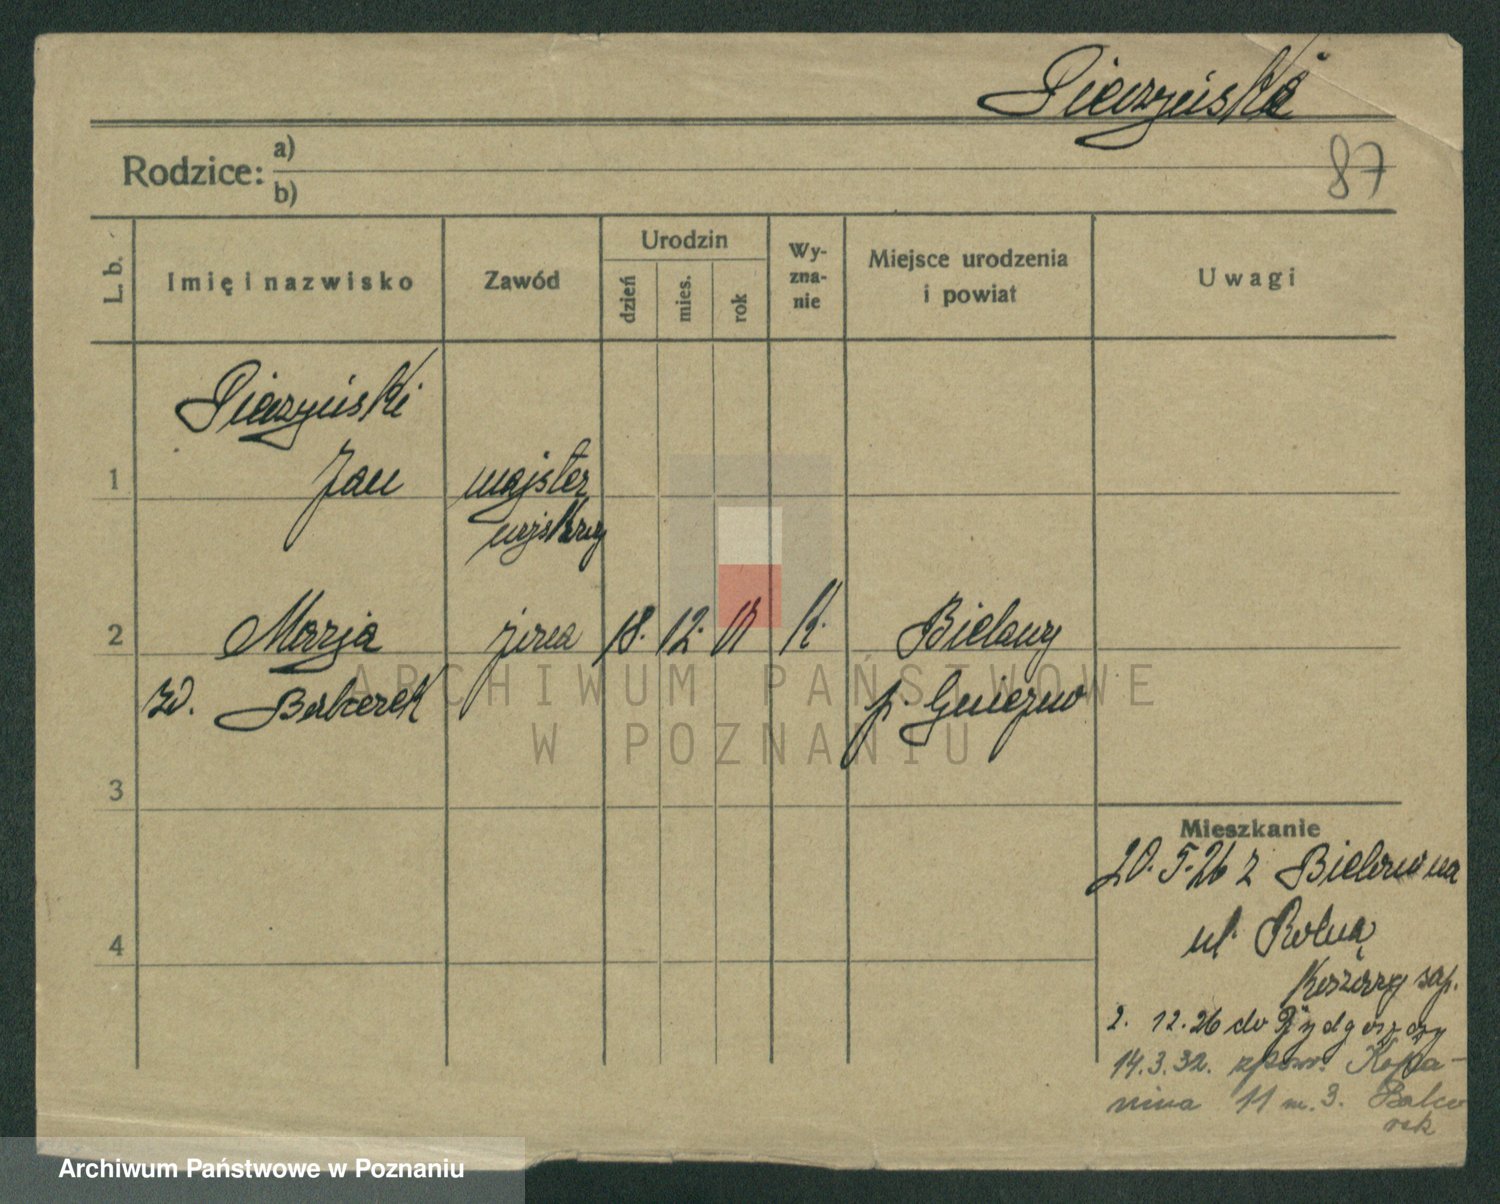 Pieczyńska
87
Rodzice: a)
b)
L. b.
Imię i nazwisko
Zawód
Urodzin
dzień
mies.
rok
Wy-
zna-
nie
Miejsce urodzenia
i powiat
Uwagi
Pieczyński
1 Jan majster
wojskowy
2 Marja żona 18. 12. 01 k. Bielawy
zd. p. Gniezno
3
4
Mieszkanie
20. 5. 26 z
ul. Rolna
Koszary sap.
2. 12. 26 do Bydgoszczy
14. 3. 32. zpow. Kopa-
nina 11 m. 3.
ARCHIWUM PAŃSTWOWE
W POZNANIU
Archiwum Państwowe w Poznaniu